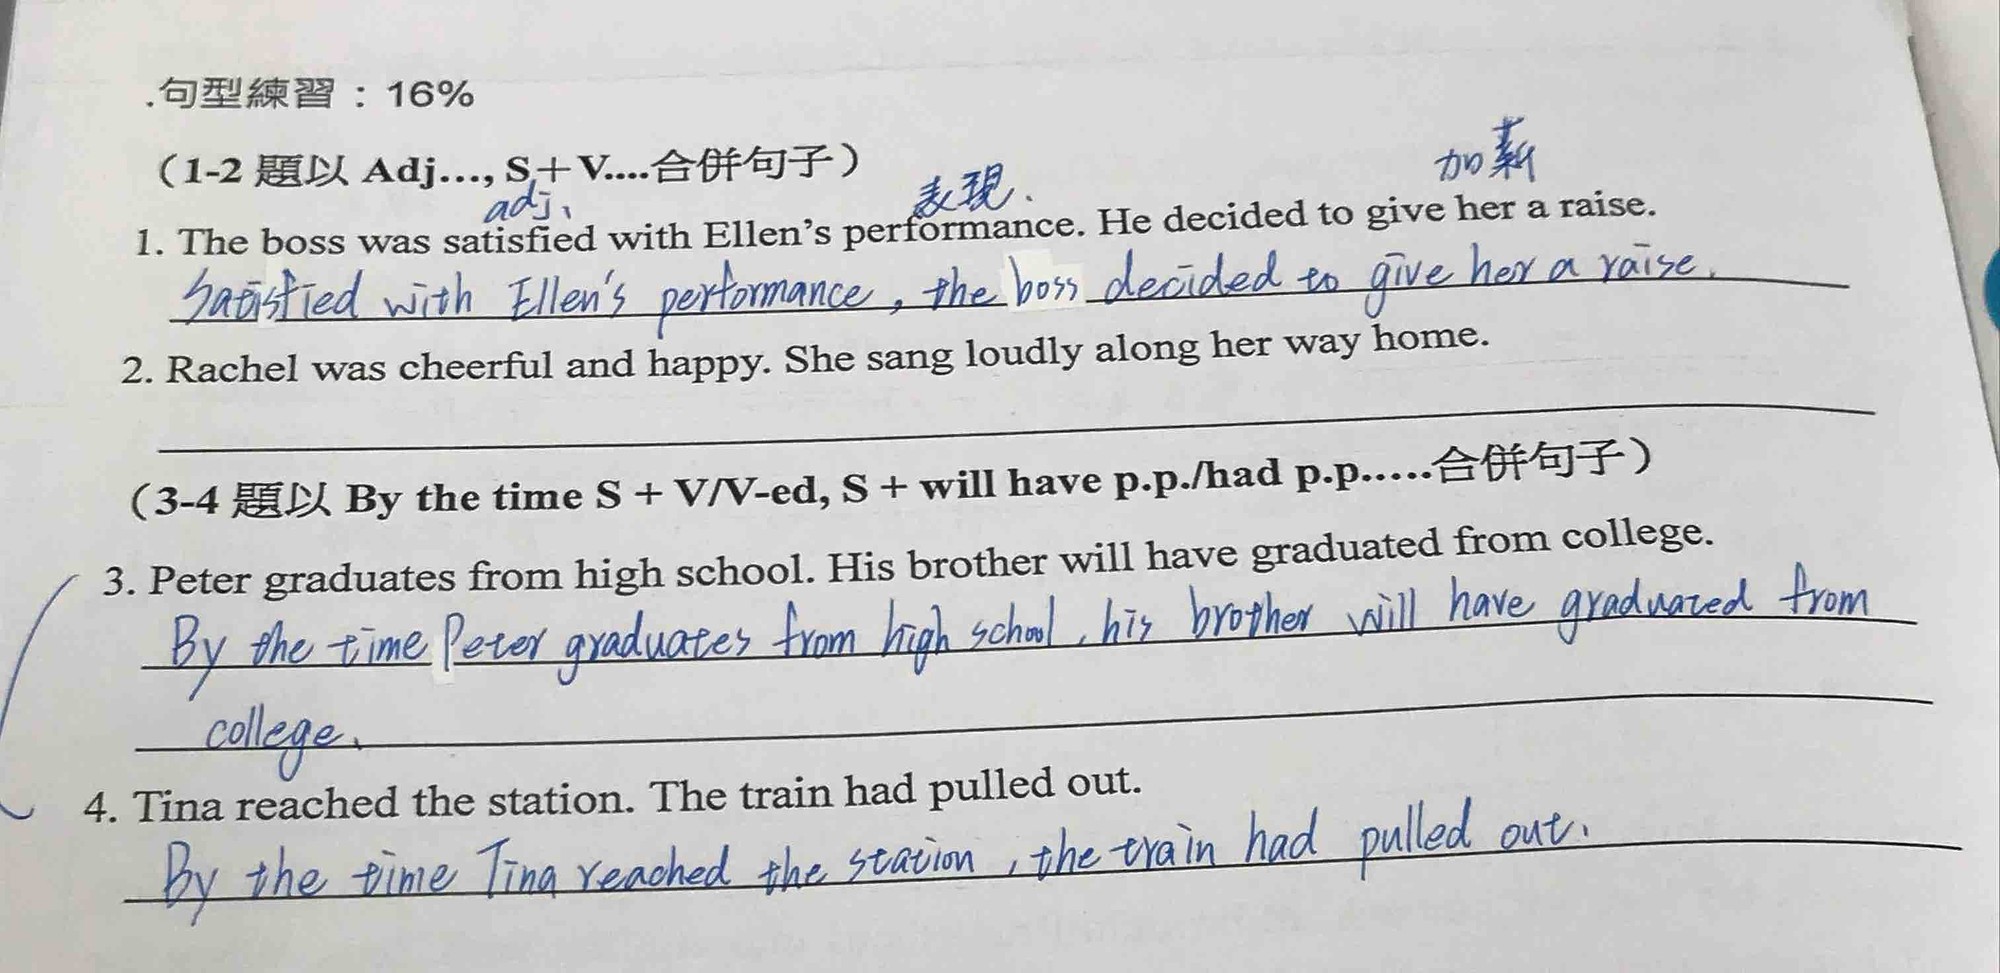 .句型練習：16%
（1-2 題以 Adj..., S+V....合併句子）
加薪
adj.
表現.
1. The boss was satisfied with Ellen's performance. He decided to give her a raise.
Satisfied with Ellen's performance, the boss decided to give her a raise.
2. Rachel was cheerful and happy. She sang loudly along her way home.
（3-4 題以 By the time S + V/V-ed, S + will have p.p./had p.p.....合併句子）
3. Peter graduates from high school. His brother will have graduated from college.
By the time Peter graduates from high school, his brother will have graduated from
college.
4. Tina reached the station. The train had pulled out.
By the time Tina reached the station, the train had pulled out.